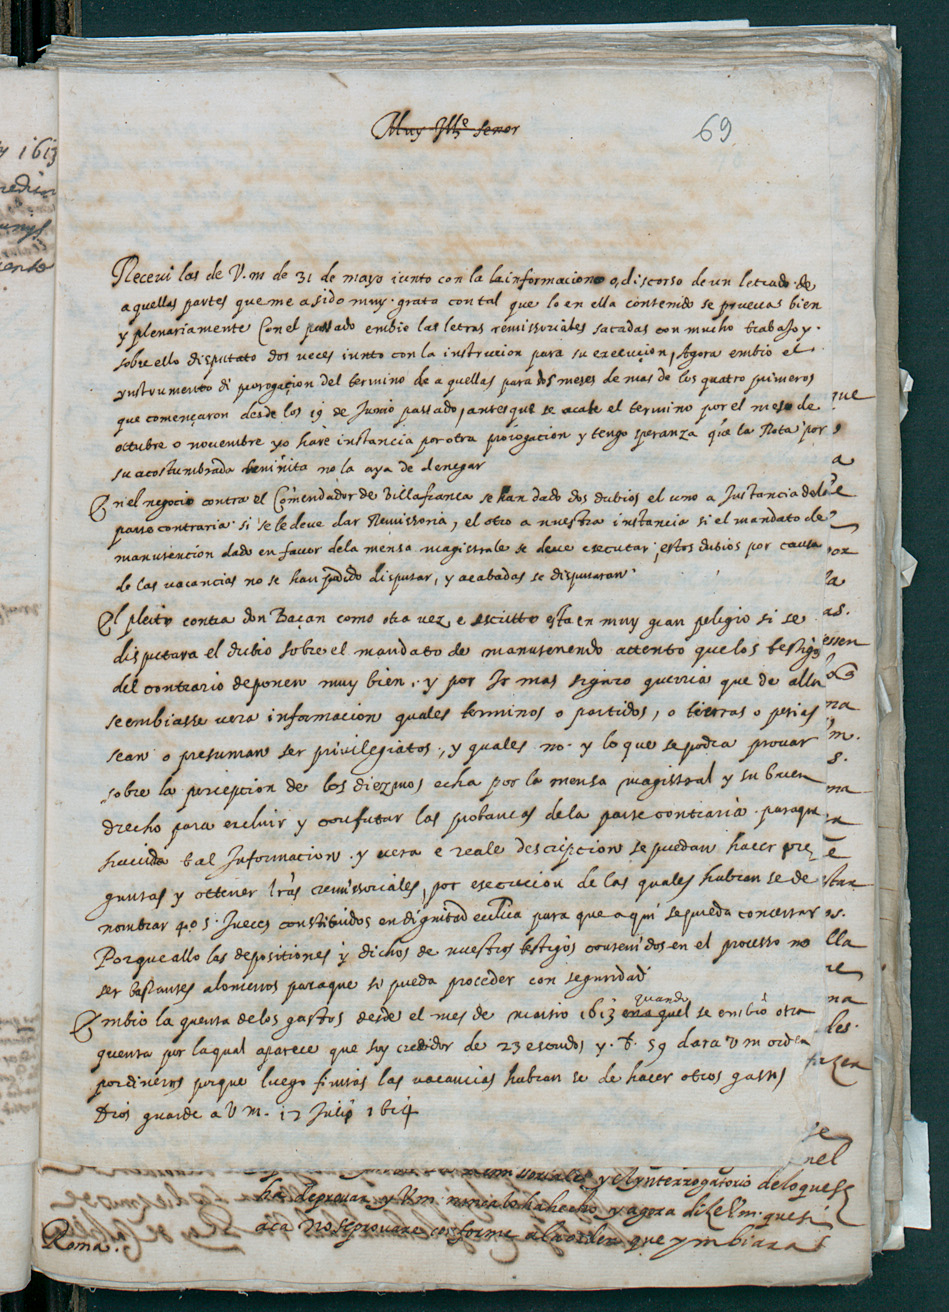 69
Muy Ille señor
Receví las de V. m de 31 de mayo iunto con la la informacion o discorso de un letrado de
aquellas partes que me a sido muy grato con tal que lo en ella contenido se pruevas bien
y plenariamente Con el passado embio las letras remissoriales sacadas con mucho trabajo y
sobre ello disputato dos veces iunto con la instrucion para su execucion, Agora embio el
ynstrumento di prorogaçion del termino de aquellas para dos meses de mas de los quatro primeros
que començaron desde los 19 de Junio passado, antes que se acabe el termino por el mese de
octubre o novembre yo haré instancia por otra prorogacion y tengo speranza q̃ la Rota por
su acostumbrada beninita no la aya de denegar
En el negocio contra el Comendador de Villafranca se han dado dos dubios el uno a Instancia dela
parte contraria si se le deve dar Remissoria, el otro a nuestra instancia si el mandato de
manutencion dado en favor dela mensa magistrale se deve esecutar, estos dubios por causa
de las vacancias no se han podido disputar, y acabadas se disputaran
El pleito contra don Baçan como otra vez e escritto esta en muy gran peligro si se
disputara el dubio sobre el mandato de manutenendo attento que los testigos
del contrario deponen muy bien, y por Ir mas siguro querria que de alla
se embiasse vera informacion quales terminos o partidos, o tierras o
sean o presuman ser privilegiatos, y quales no y lo que se podra provar
sobre la percepcion de los diezmos echa por la mensa magistral y su buen
drecho para excluir y confutar las probancas de la parte contraria paraque
havida tal Informacion y vera e reale descripcion se puedan hacer pre
guntas y ottener lrãs remissoriales, por esecucion de las quales habran se de
nombrar 4 o 5 Jueces constituidos en dignitad para que aqui se pueda concertar
Porque allo las depositiones y dichos de nuestros testigos contenidos en el processo no
ser bastantes alomenos paraque se pueda proceder con seguridad
Embio la quenta de los gastos desde el mes de março 1613 quando se embió otra
quenta por laqual aparece que soy creditor de 23 escudos y 59 dara V m orden
por dineros porque luego finitas las vacancias habran se de hacer otros gastos
Dios guarde a V m. 17 Julio 1614
y Aynterrogatorio de loque se
ha deprovar y Vm nunca lo ha hecho y agora dize Vm que si
aca no se provare conforme ala orden que ymbiara
Roma.